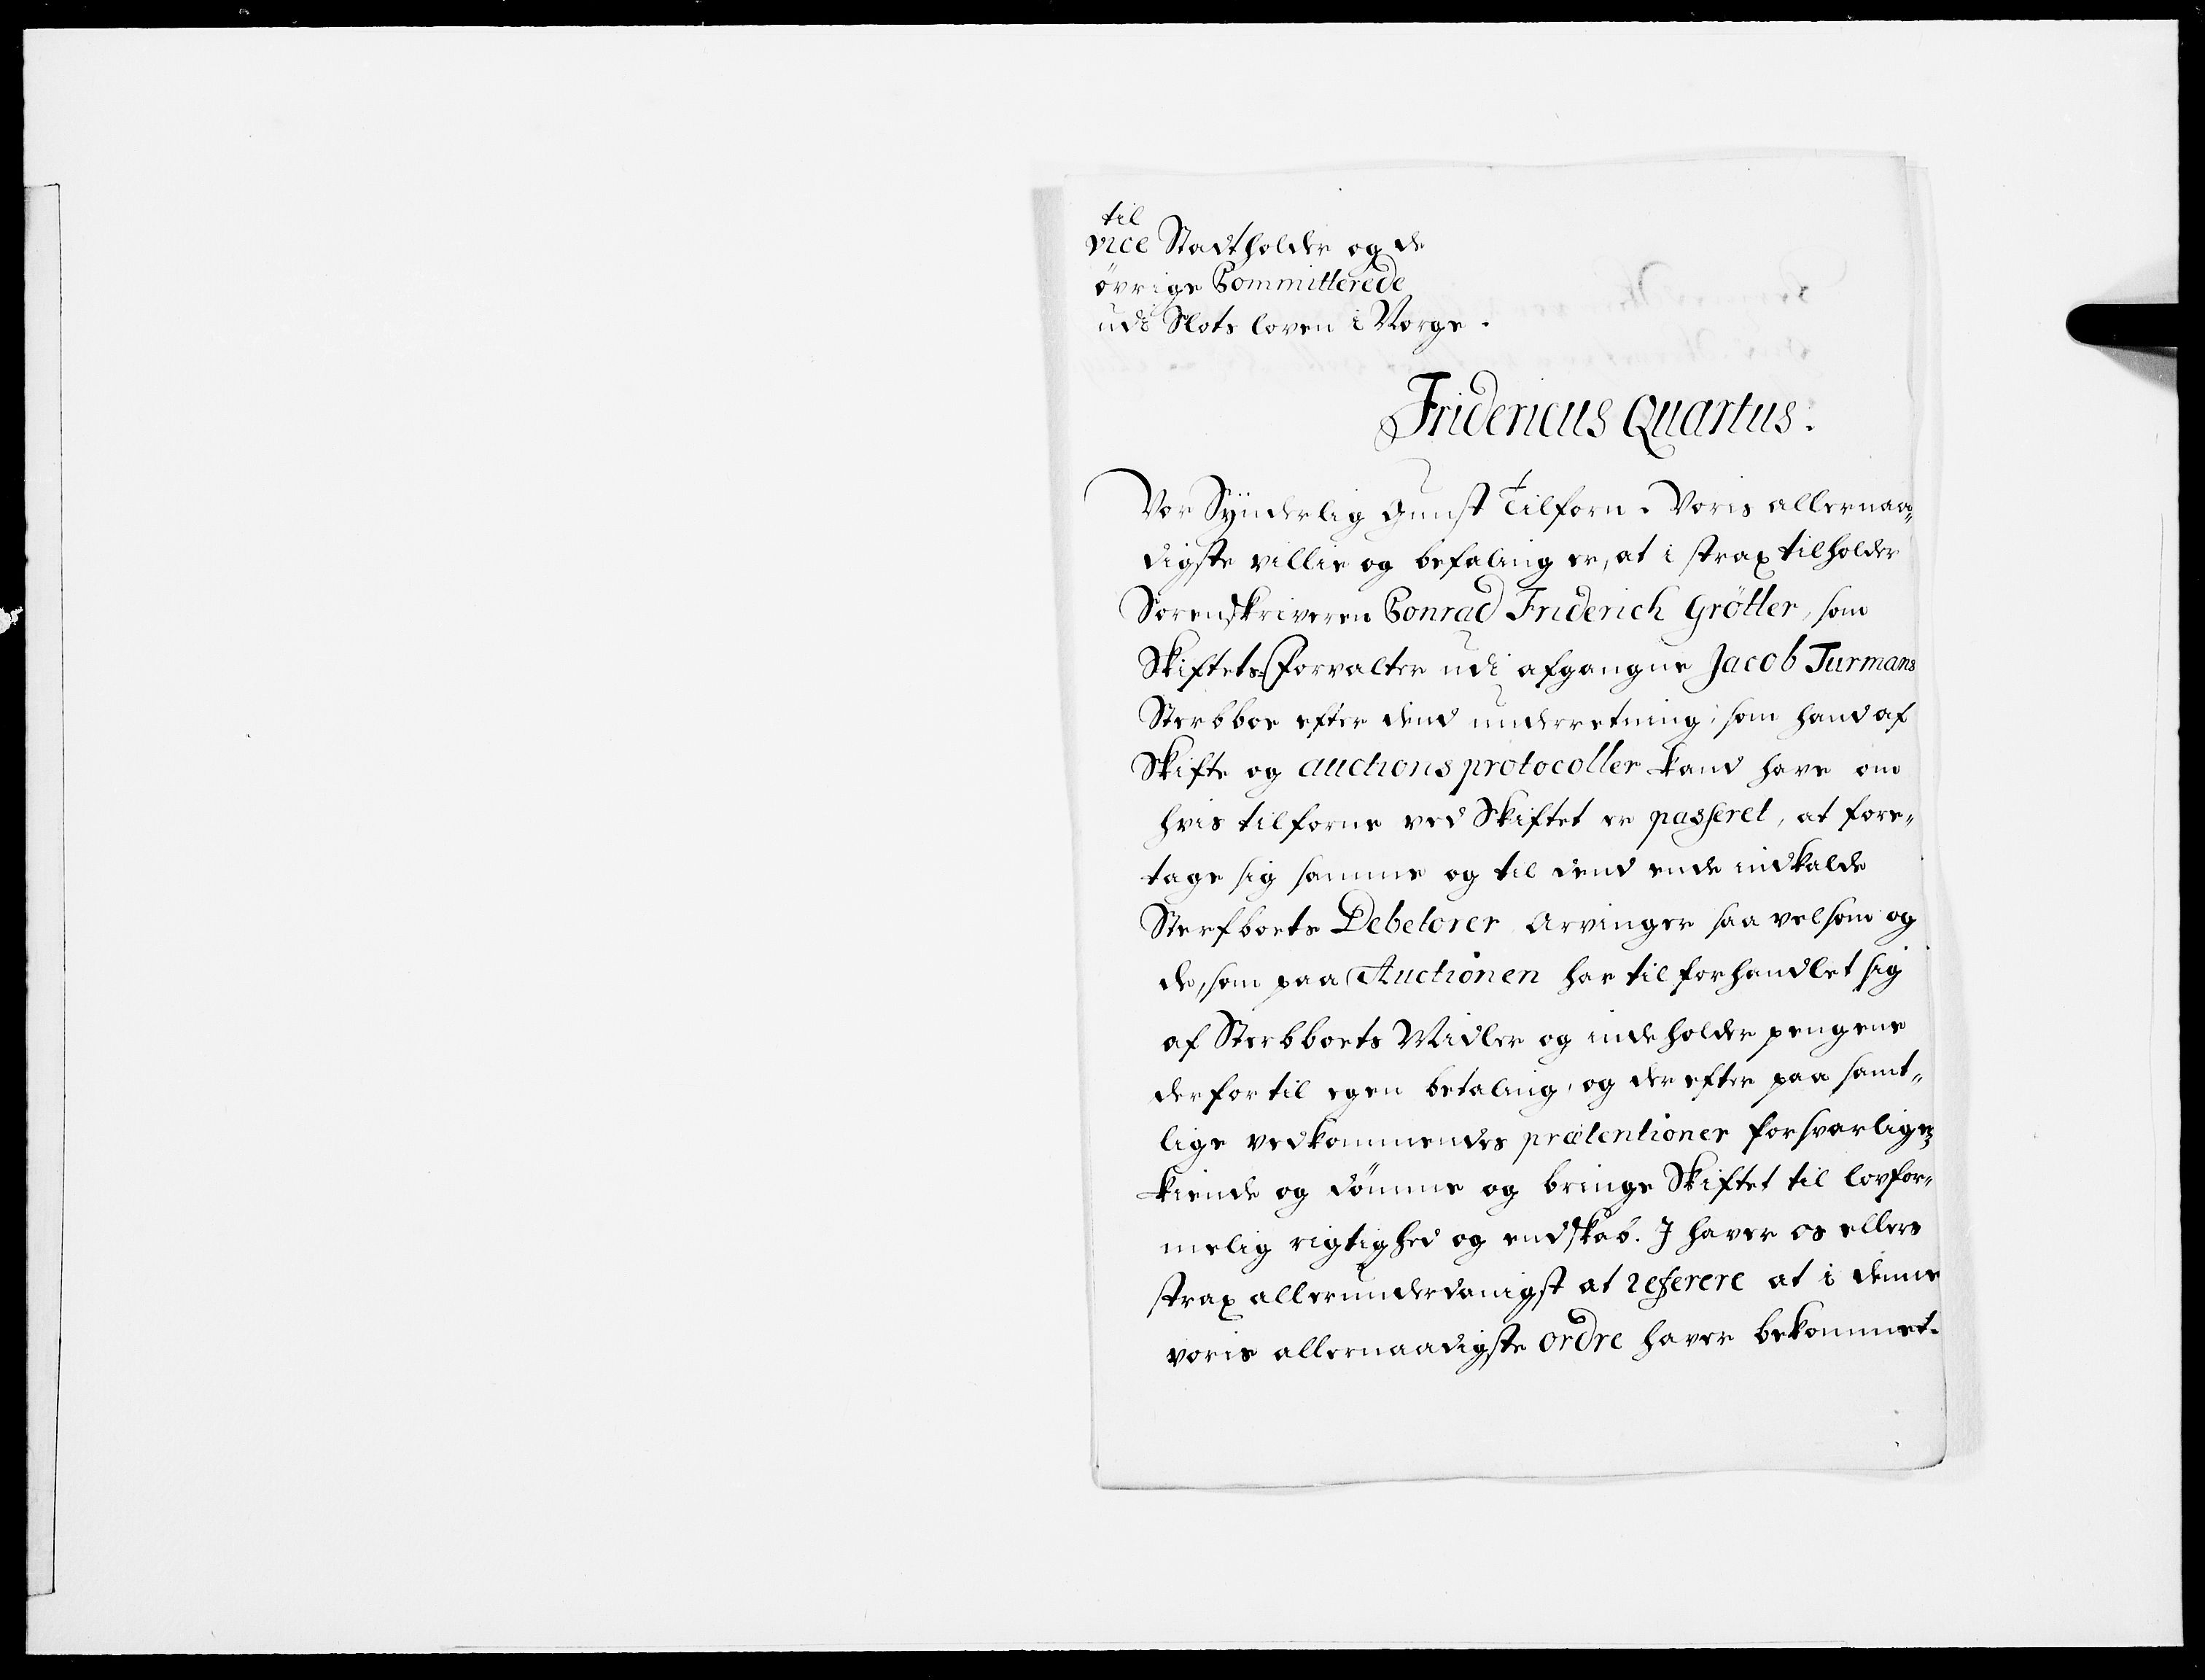 til
vice Stadtholder og de
övrige Committerede
udi Slots loven i Norge.
Fridericus Quartus.
Vor Synderlig Gunst Tilforn. Voris allernaa„
digste villie og befaling er, at i strax tilholder
Sorenskriveren Conrad Friderich Grötler, som
Skiftets Forvalter udi afgangne Jacob Turmans
Sterbboe efter dend underretning, som hand af
Skifte og auctions protocoller kand have om
hvis tilforne ved Skiftet er passeret, at fore„
tage sig samme og til dend ende indkalde
Sterfboets Debetorer Arvinger saa velsom og
de, som paa Auctionen har tilforhandlet sig
af Sterbboets Midler og indeholder pengene
derfor til egen betaling, og derefter paa samt„
lige vedkommendes prætentioner forsvarligen
kiende og dömme og bringe Skiftet til lovfor„
melig rigtighed og endskab. I haver os ellers
strax allerunderdanigst at referere at i denne
voris allernaadigste ordre haver bekommet.